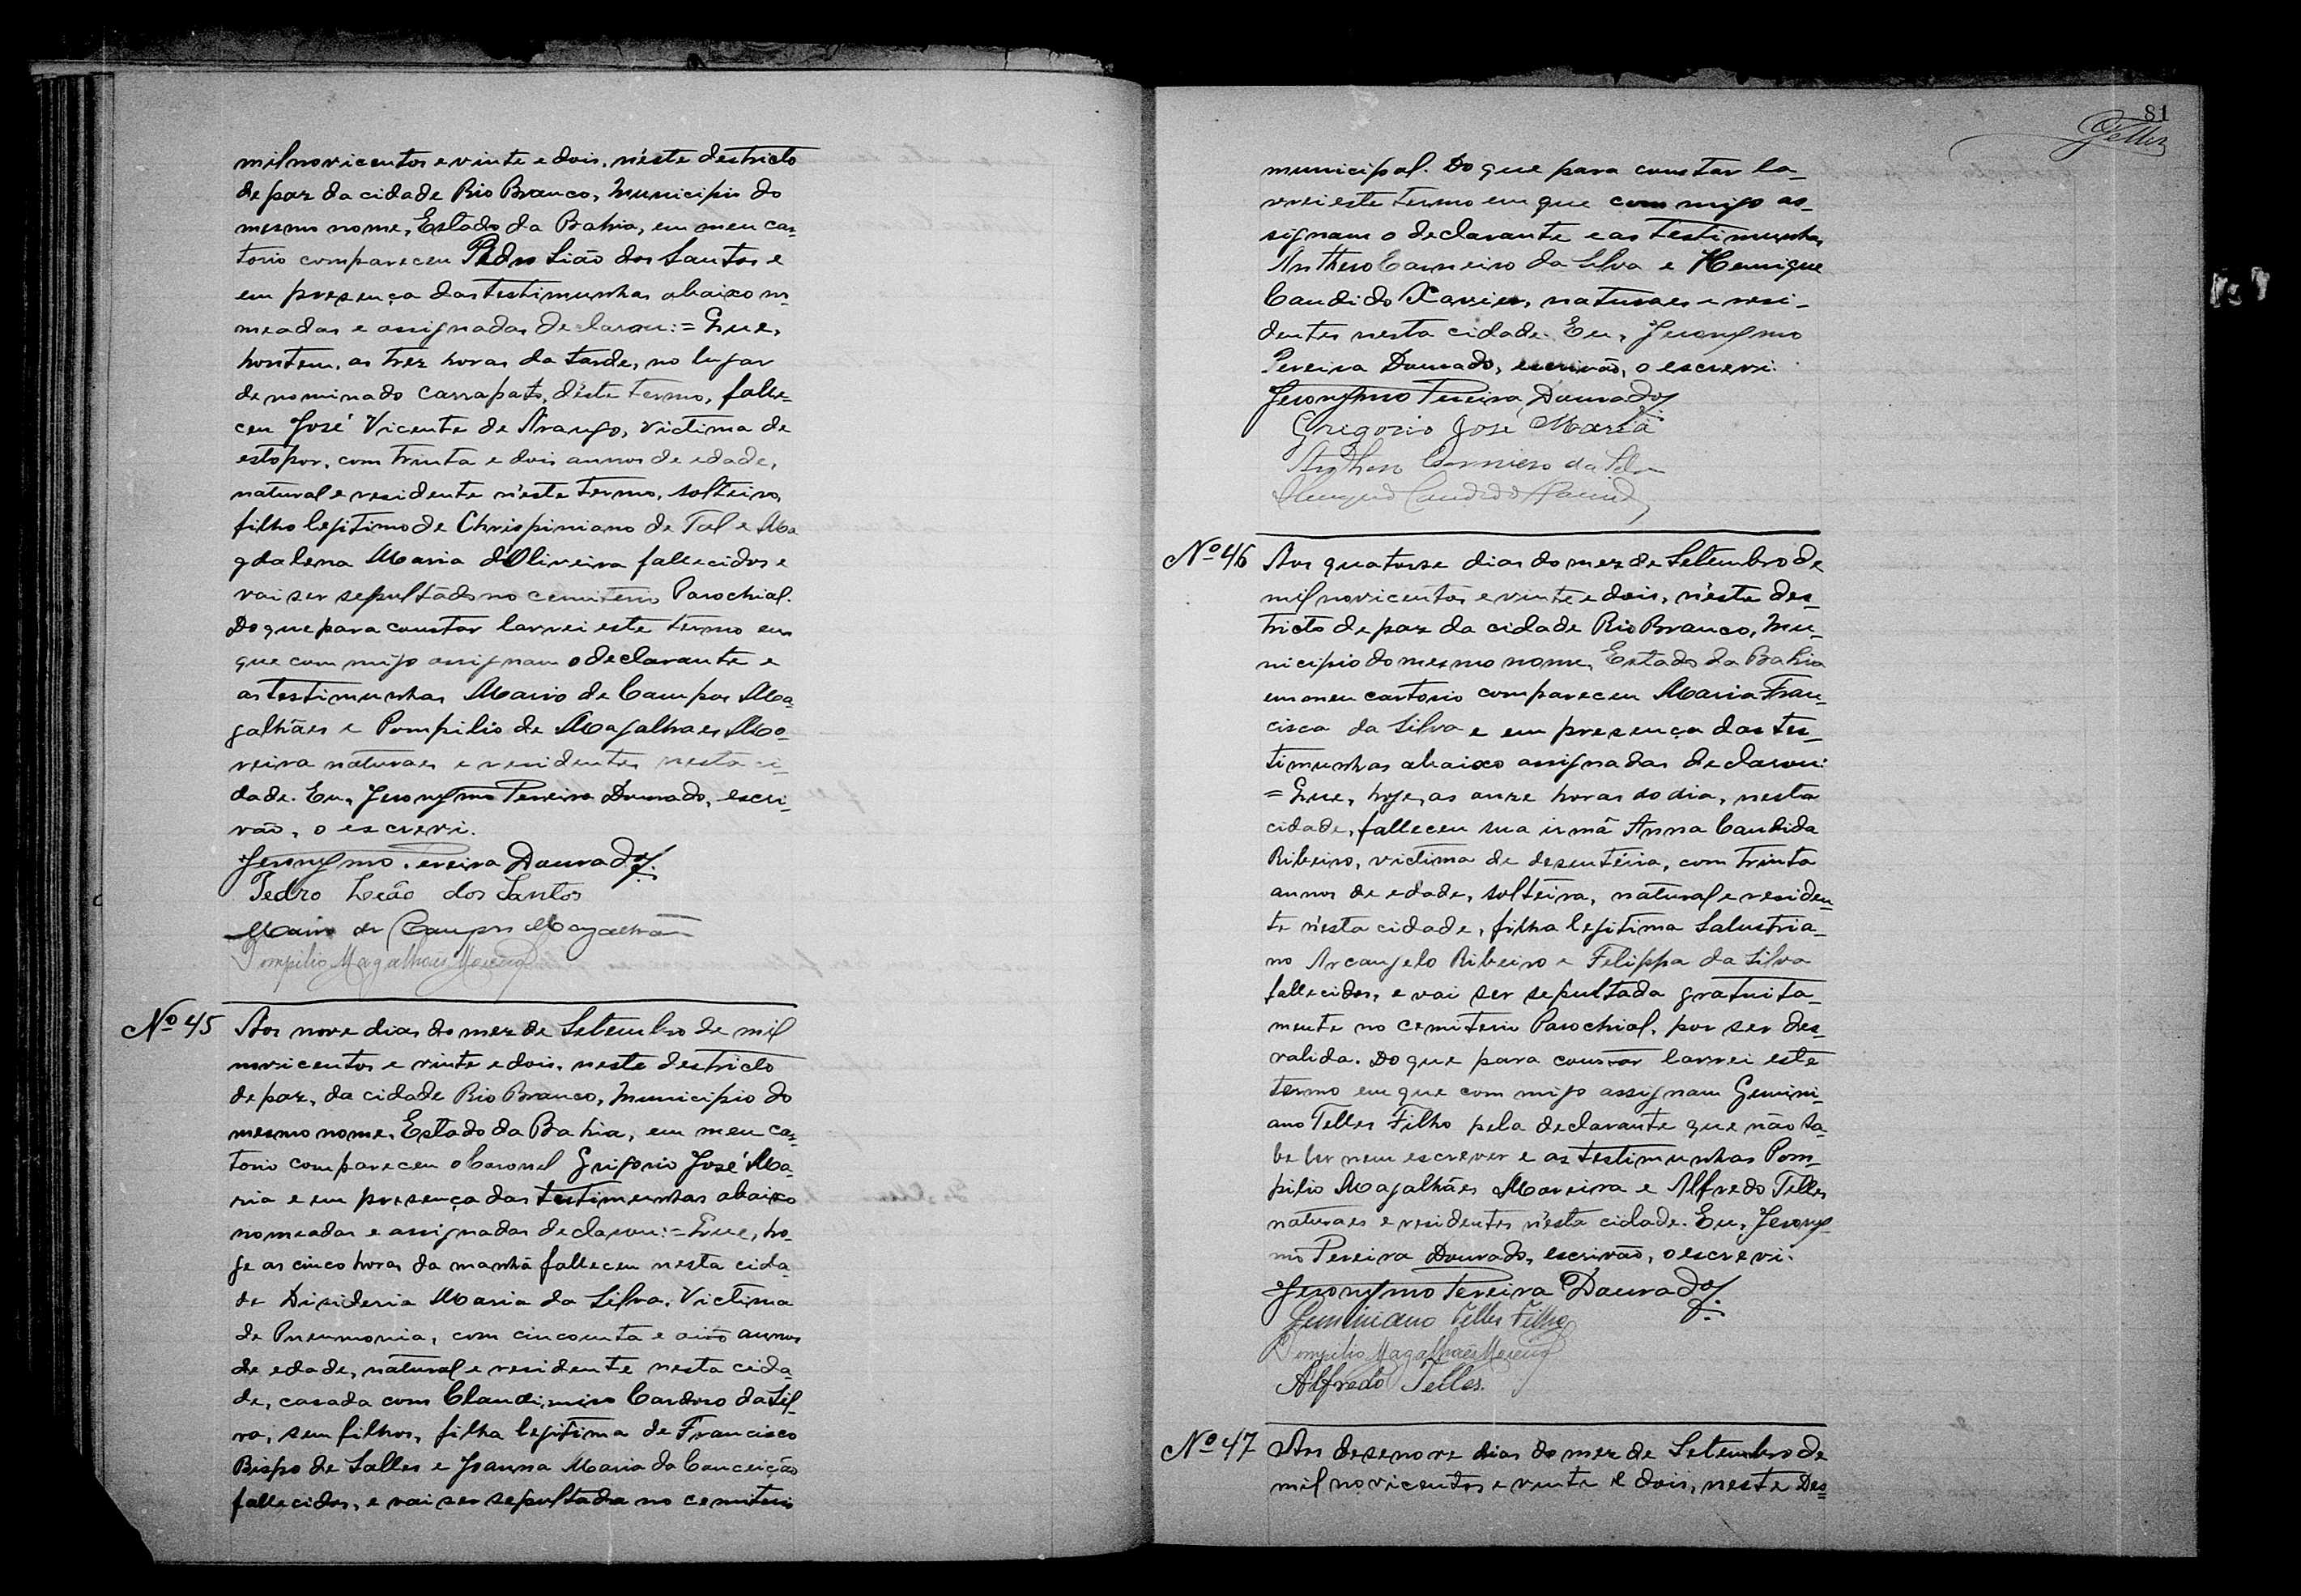 mil novicentos e vinte e dois, n'éste destricto
de paz da cidade Rio Branco, Municipio do
mesmo nome, Estado da Bahia, em meu car-
torio compareceu Pedro Lião dos Santos e
em presença das testimunhas abaixo no-
meadas e assignadas declarou:= Que,
hontem, as trez horas da tarde, no lugar
denominado Carrapato, d'éste termo, falle-
ceu José Vicente de Araujo, victima de
estopor, com trinta e dois annos de edade,
natural e residente n'éste termo, solteiro,
filho legitimo de Chrispiniano de Tal e Ma
gdalena Maria d'Oliveira fallecidos e
vai ser sepultado no cemiterio Parochial.
Do que para constar lavrei este termo em
que com migo assignam o declarante e
as testimunhas Mario de Campos Ma-
galhães e Pompilio de Magalhaes Mo-
reira naturaes e residentes nesta ci-
dade. Eu, Jeronymo Pereira Dourado, escri-
vão, o escrevi.
Jeronymo Pereira Dourado
Pedro Leão dos Santos
Mario de Campos Magalhães
Pompilio Magalhães Moreira
Nº 45 Aos nove dias do mez de Setembro de mil
novicentos e vinte e dois, neste destricto
de paz, da cidade Rio Branco, Municipio do
mesmo nome, Estado da Bahia, em meu car-
torio compareceu o Coronel Grigorio José Ma-
ria e em presença das testimunhas abaixo
nomeadas e assignadas declarou:= Que, ho-
je as cinco horas da manhã falleceu nesta cida-
de Disideria Maria da Silva, Victima
de Pneumonia, com cincoenta e oito annos
de edade, natural e residente nesta cida-
de, casada com Claudimiro Cardoso da Sil-
va, sem filhos, filha legitima de Francisco
Bispo de Salles e Joanna Maria da Conceição
fallecidos, e vai ser sepultada no cemiterio
81
Telles
municipal. Do que para constar la-
vrei este termo em que com migo as-
signam o declarante e as testimunhas
Anthero Carneiro da Silva e Henrique
Candido Xavier, naturaes e resi-
dentes nesta cidade. Eu, Jeronymo
Pereira Dourado, escrivão, o escrevi.
Jeronymo Pereira Dourado
Gregorio José Maria
Anthero Carneiro da Silva
Candido
Nº 46 Aos quatorse dias do mez de Setembro de
mil novicentos e vinte e dois, n'éste des-
tricto de paz da cidade Rio Branco, Mu-
nicipio do mesmo nome, Estado da Bahia
em meu cartorio compareceu Maria Fran-
cisca da Silva e em presença das tes-
timunhas abaixo assignadas declarou:
= Que, hoje, as onze horas do dia, nesta
cidade, falleceu sua irmã Anna Candida
Ribeiro, victima de desentéria, com trinta
annos de edade, solteira, natural e residen-
te n'ésta cidade, filha legitima Salustria-
no Arcangelo Ribeiro e Felippa da Silva
fallecidos, e vai ser sepultada gratuita-
mente no cemiterio Parochial, por ser des-
valida. Do que para constar lavrei este
termo em que com migo assignam Gemini-
ano Telles Filho pela declarante que não sa-
be ler nem escrever e as testimunhas Pom-
pilio Magalhães Moreira e Alfredo Telles
naturaes e residentes n'ésta cidade. Eu, Jerony-
mo Pereira Dourado, escrivão, o escrevi.
Jeronymo Pereira Dourado
Geminiano Telles Filho
Pompilio Magalhães Moreira
Alfredo Telles.
Nº 47 Aos desenove dias do mez de Setembro de
mil novicentos e vinte e dois, neste Des=